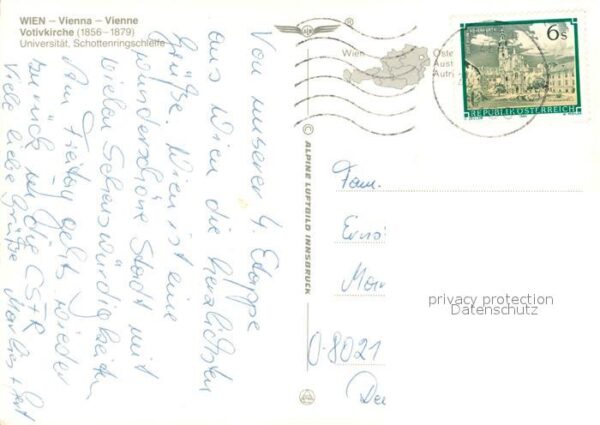 WIEN – Vienna – Vienne
Votivkirche (1856–1879)
Universität, Schottenringschleife
Wien
Öste
Aust
Autri
6s
REPUBLIK ÖSTERREICH
© ALPINE LUFTBILD INNSBRUCK
Von unserer 4. Etappe
aus Wien die herzlichsten
Grüße. Wien ist eine
wunderschöne Stadt mit
vielen Sehenswürdigkeiten
Am Freitag gehts wieder
zurück in die CSFR
Viele liebe Grüße Marlies +
Fam.
Erns
O-8021
privacy protection
Datenschutz